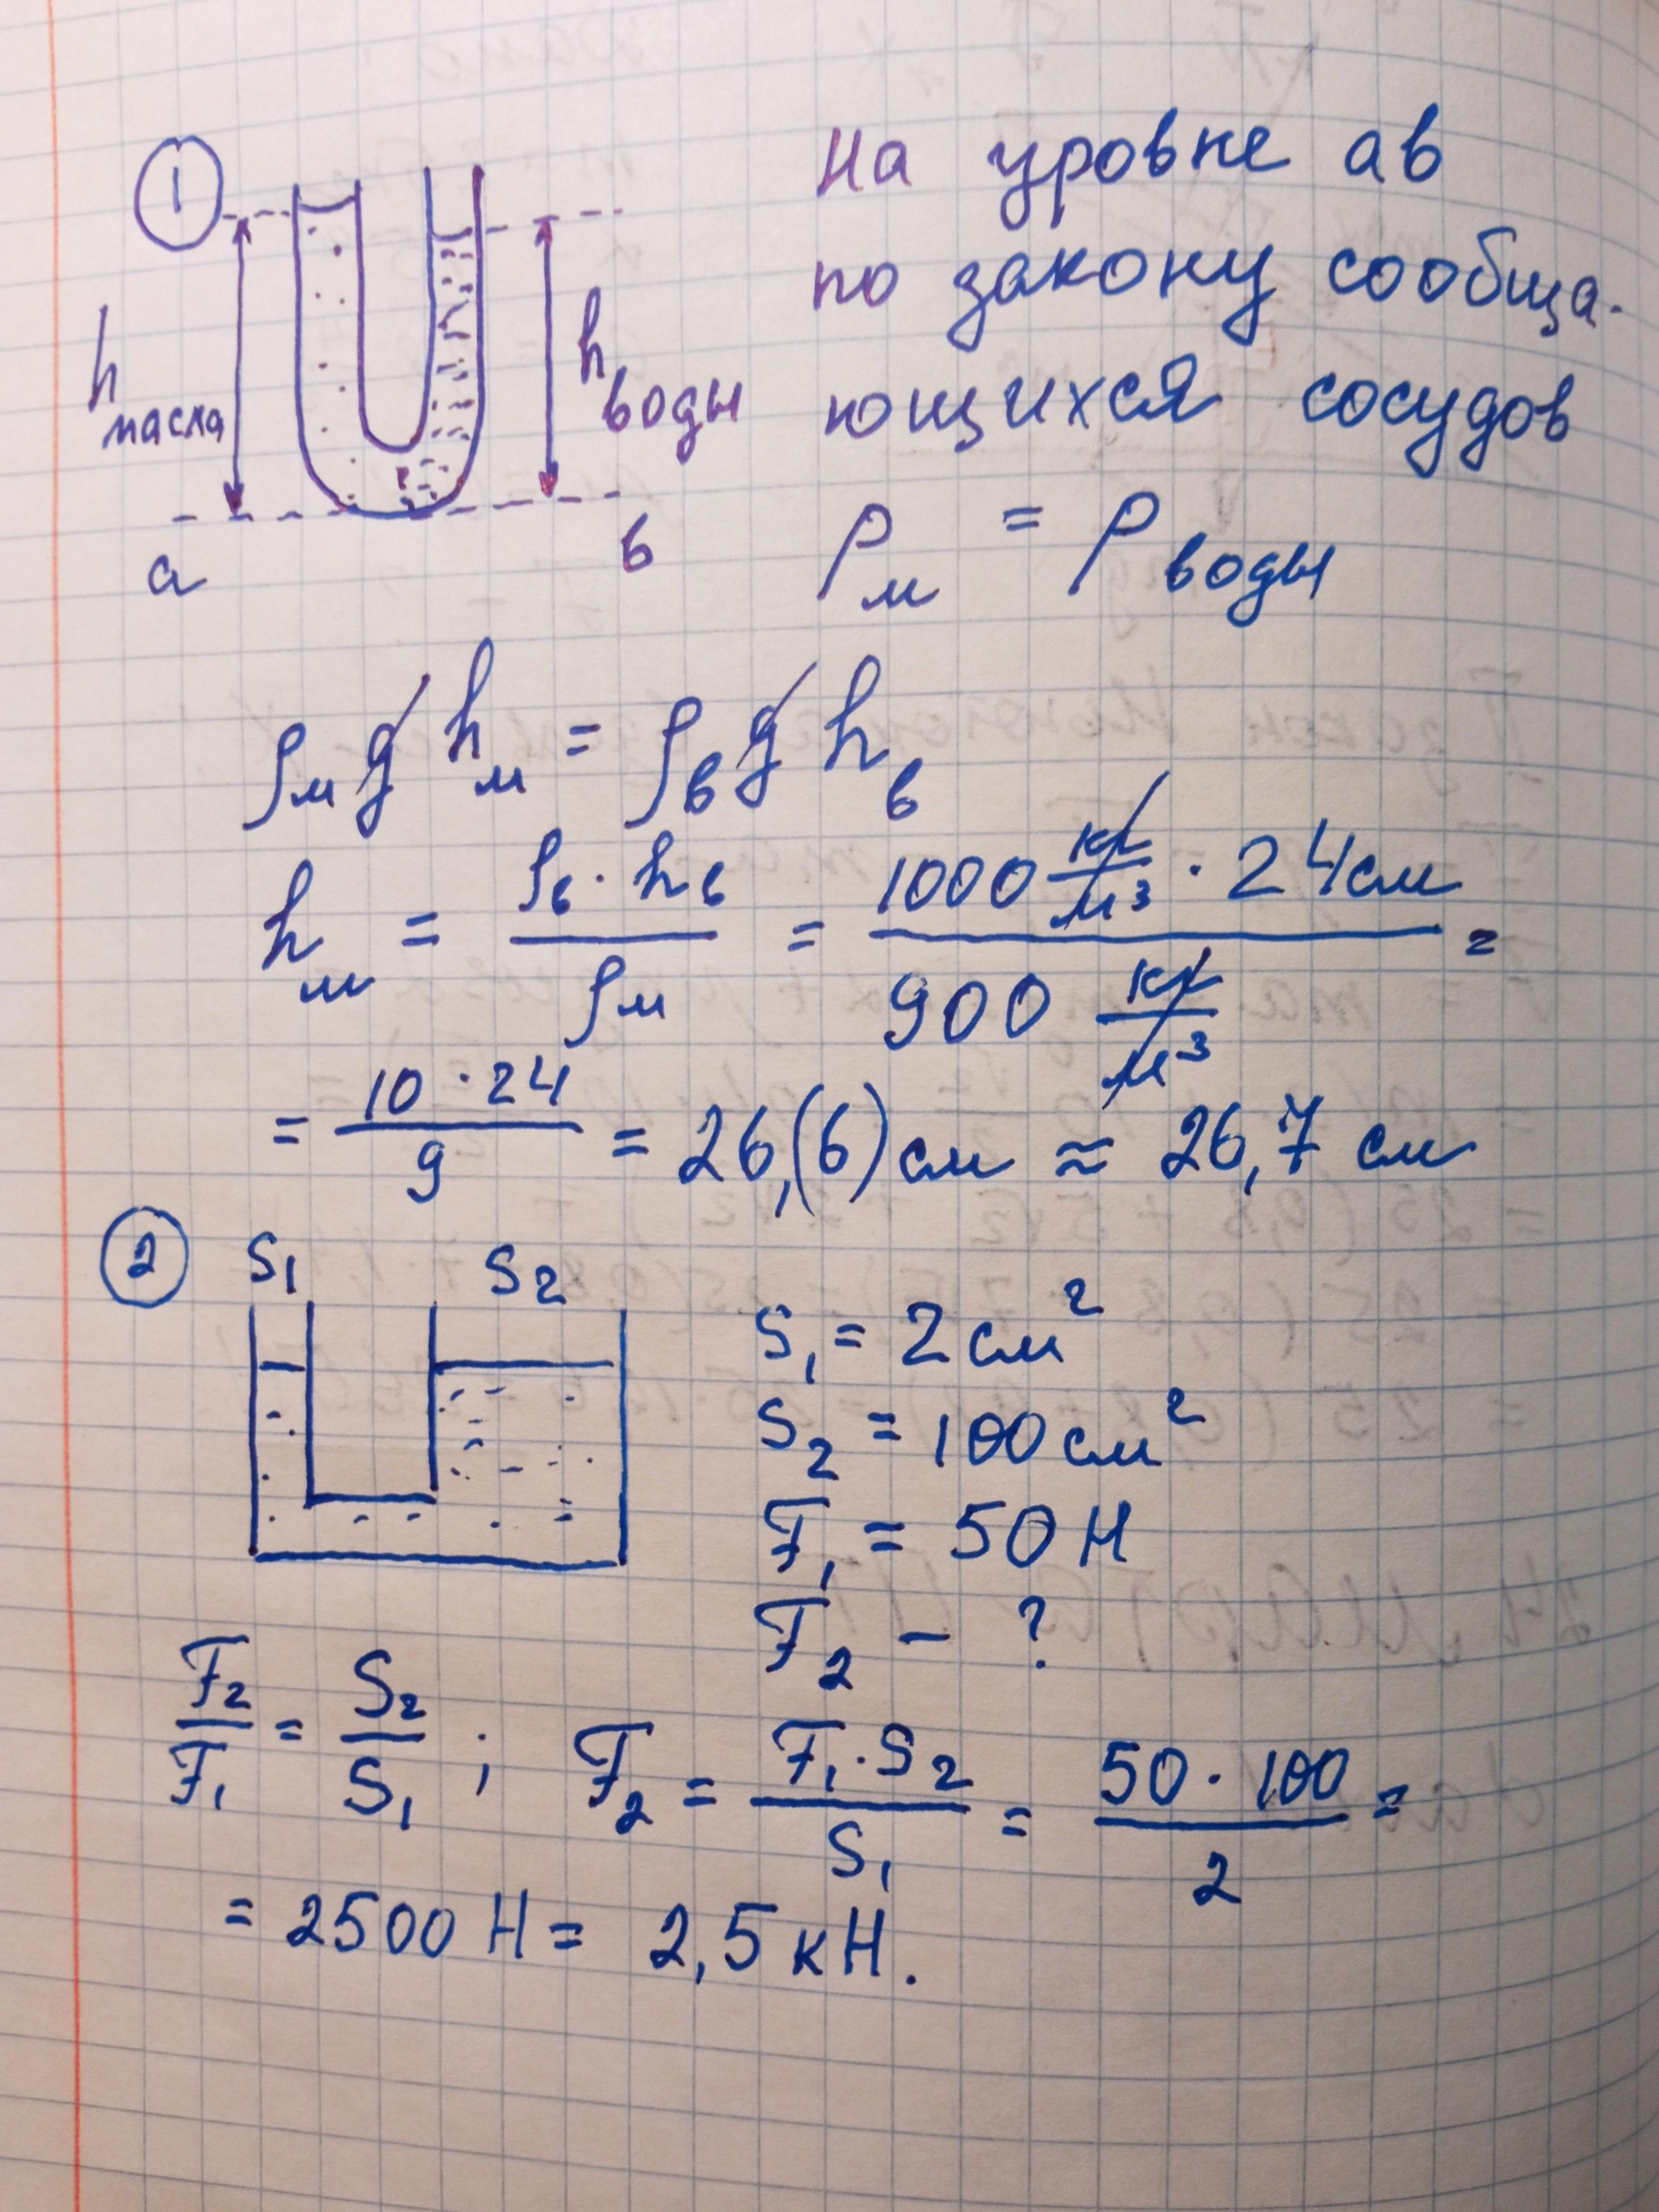 1
На уровне ав
по закону сообща-
ющихся сосудов
h масла
h воды
а
в
Pм = Pводы
ρм g hм = ρв g hв
hм = ρв · hв / ρм = 1000 кг/м³ · 24 см / 900 кг/м³ =
= 10 · 24 / 9 = 26,(6) см ≈ 26,7 см
2
S₁ S₂
S₁ = 2 см²
S₂ = 100 см²
F₁ = 50 Н
F₂ – ?
F₂/F₁ = S₂/S₁ ; F₂ = F₁ · S₂ / S₁ = 50 · 100 / 2 =
= 2500 Н = 2,5 кН.